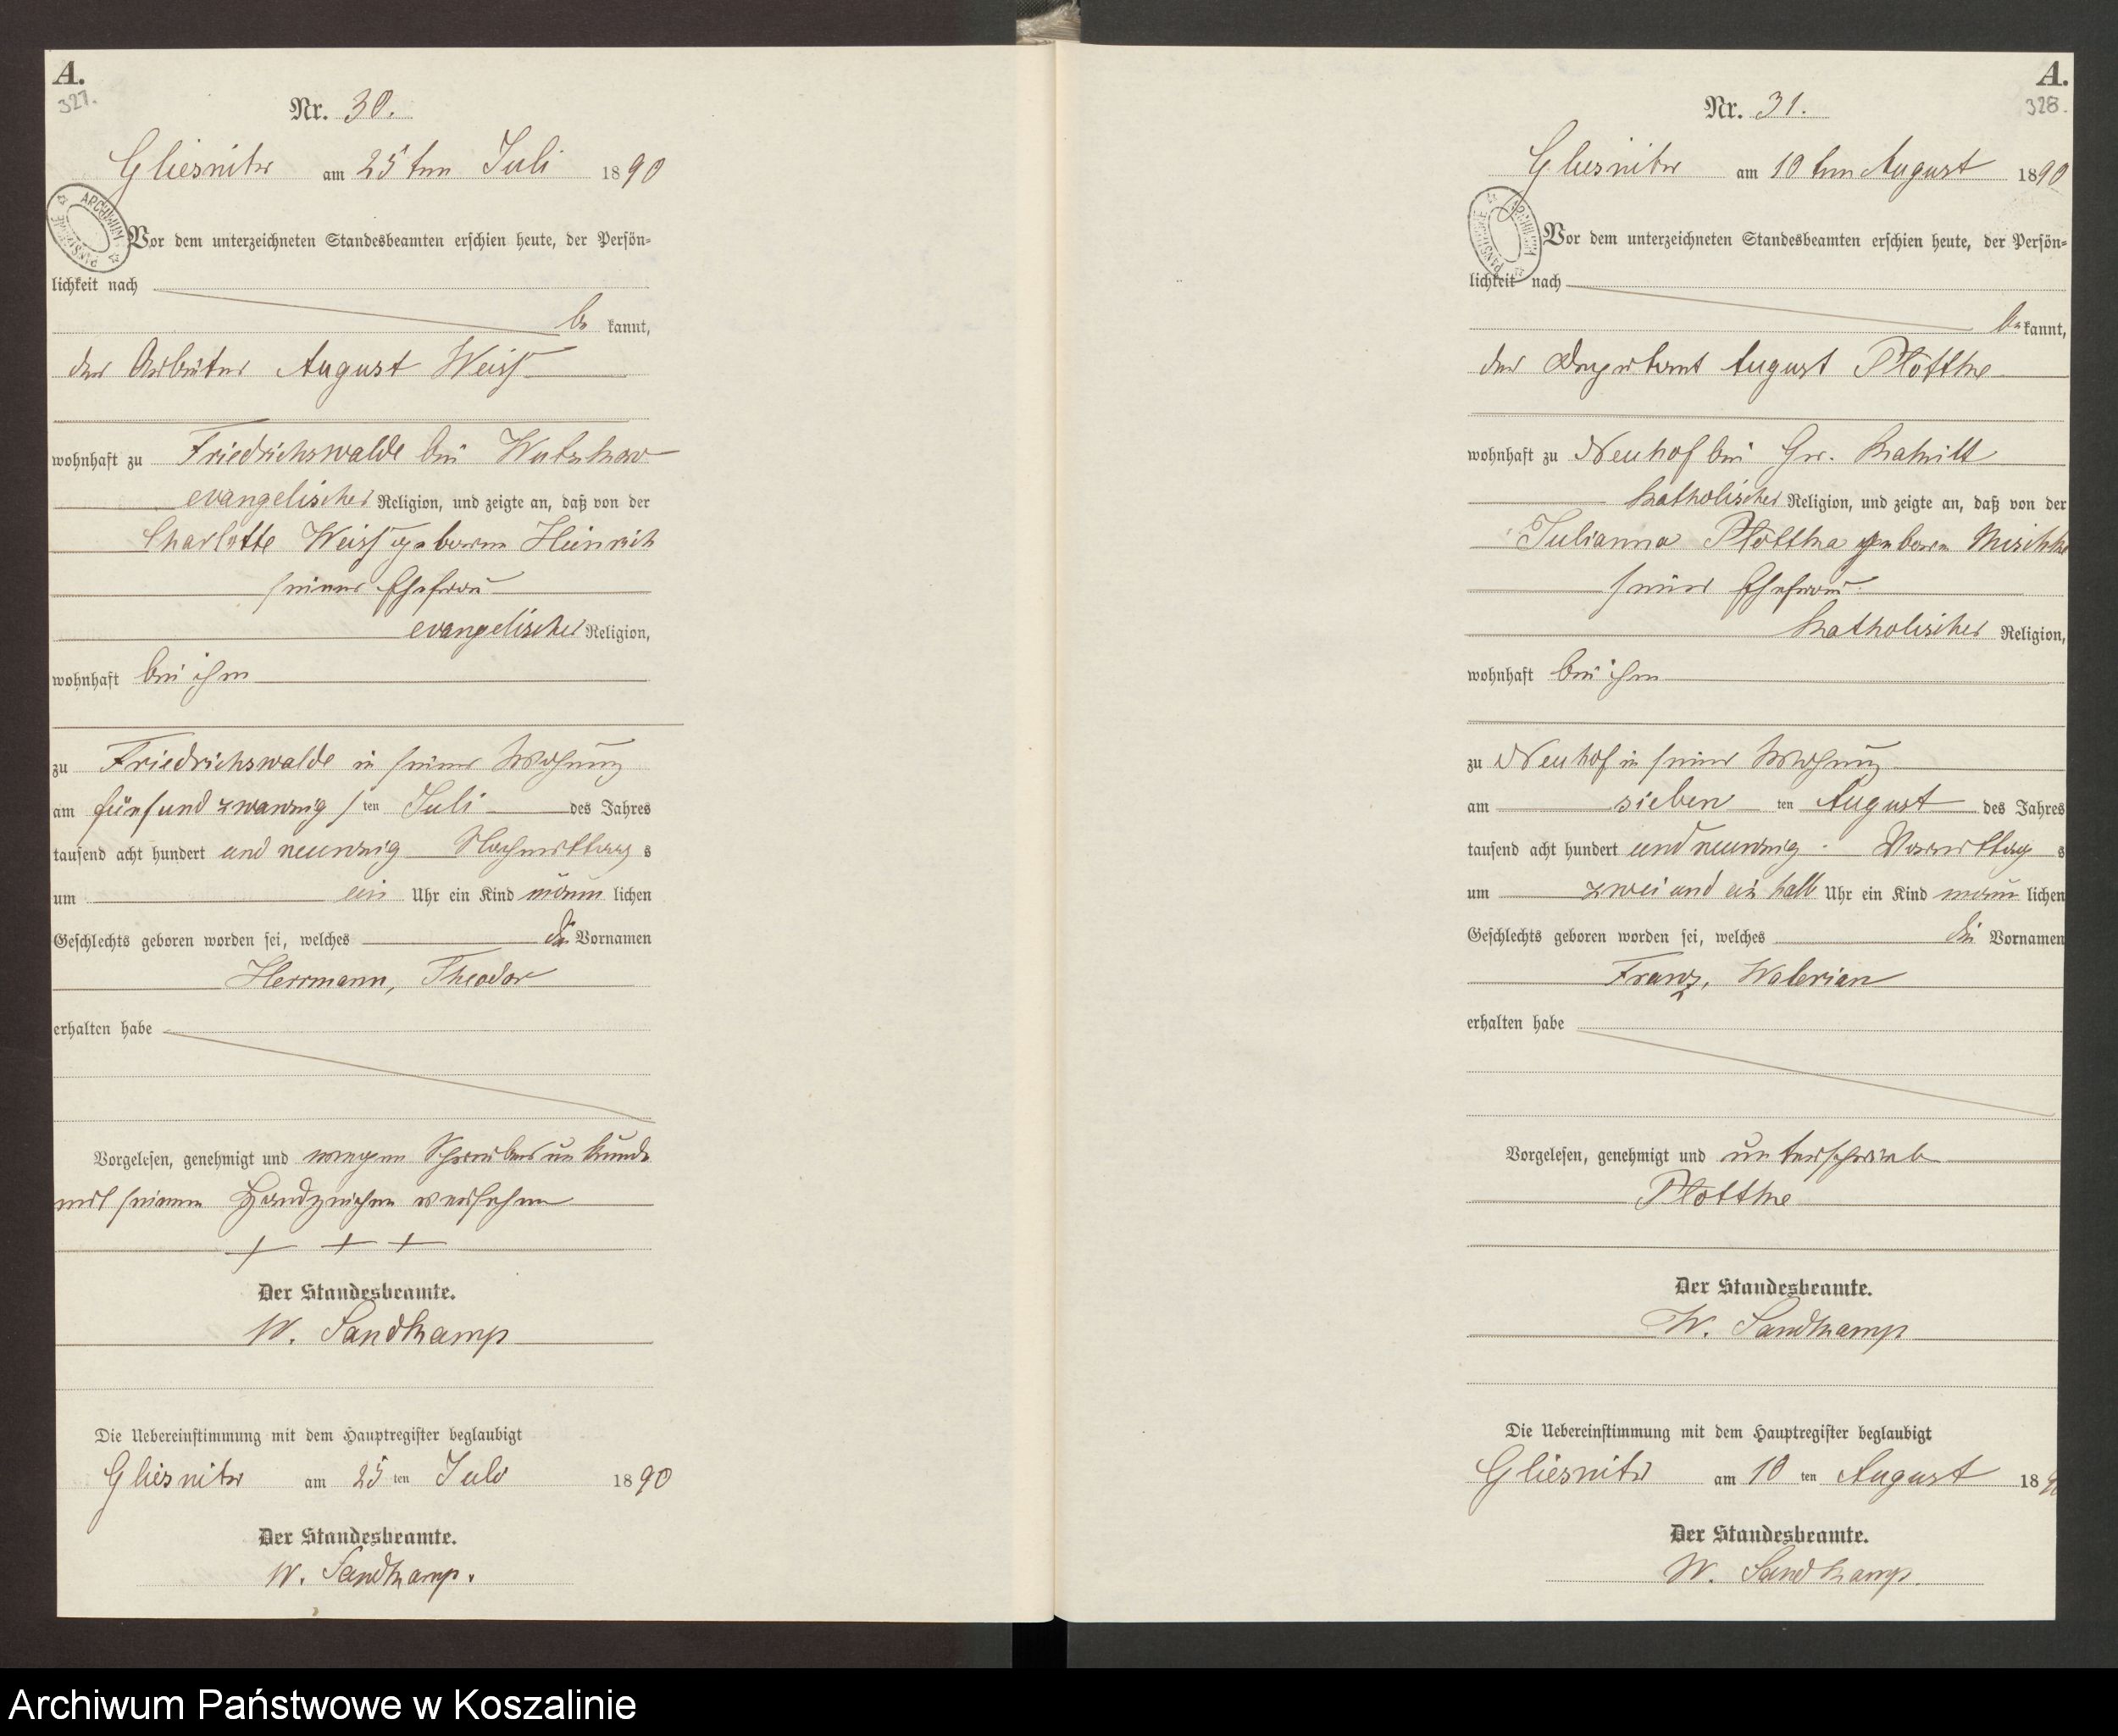 A.
327.
Nr. 30.
Gliesnitz am 25ten Juli 1890
ARCHIWUM PAŃSTWOWE
Vor dem unterzeichneten Standesbeamten erschien heute, der Persön=
lichkeit nach
be kannt,
der Arbeiter August Weiss
wohnhaft zu Friedrichswalde bei Wutzkow
evangelischer Religion, und zeigte an, daß von der
Charlotte Weiss geborne Heinrich
seiner Ehefrau
evangelischer Religion,
wohnhaft bei ihm
zu Friedrichswalde in seiner Wohnung
am fünfundzwanzigsten Juli des Jahres
tausend acht hundert und neunzig Nachmittags
um ein Uhr ein Kind männlichen
Geschlechts geboren worden sei, welches die Vornamen
Herrmann, Theodor
erhalten habe
Vorgelesen, genehmigt und wegen Schreibensunkunde
mit seinem Handzeichen versehen
+ + +
Der Standesbeamte.
W. Sandkamp
Die Uebereinstimmung mit dem Hauptregister beglaubigt
Gliesnitz am 25 ten Juli 1890
Der Standesbeamte.
W. Sandkamp.
A.
328.
Nr. 31.
Gliesnitz am 10ten August 1890
ARCHIWUM PAŃSTWOWE
Vor dem unterzeichneten Standesbeamten erschien heute, der Persön=
lichkeit nach
be kannt,
der August Plottke
wohnhaft zu Neuhof bei Gr.
katholischer Religion, und zeigte an, daß von der
Julianna Plottka geborne Mischke
seiner Ehefrau
katholischer Religion,
wohnhaft bei ihm
zu Neuhof in seiner Wohnung
am sieben ten August des Jahres
tausend acht hundert und neunzig Vormittags
um zwei und ein halb Uhr ein Kind männlichen
Geschlechts geboren worden sei, welches die Vornamen
Franz, Walerian
erhalten habe
Vorgelesen, genehmigt und unterschrieben
Plottke
Der Standesbeamte.
W. Sandkamp
Die Uebereinstimmung mit dem Hauptregister beglaubigt
Gliesnitz am 10 ten August 1890
Der Standesbeamte.
W. Sandkamp.
Archiwum Państwowe w Koszalinie